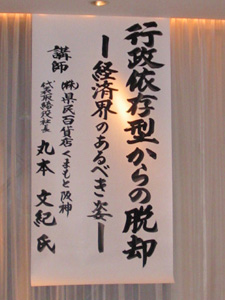 行政依存型からの脱却
―経済界のあるべき姿―
講師
㈱県民百貨店くまもと阪神
代表取締役社長
丸本 文紀 氏